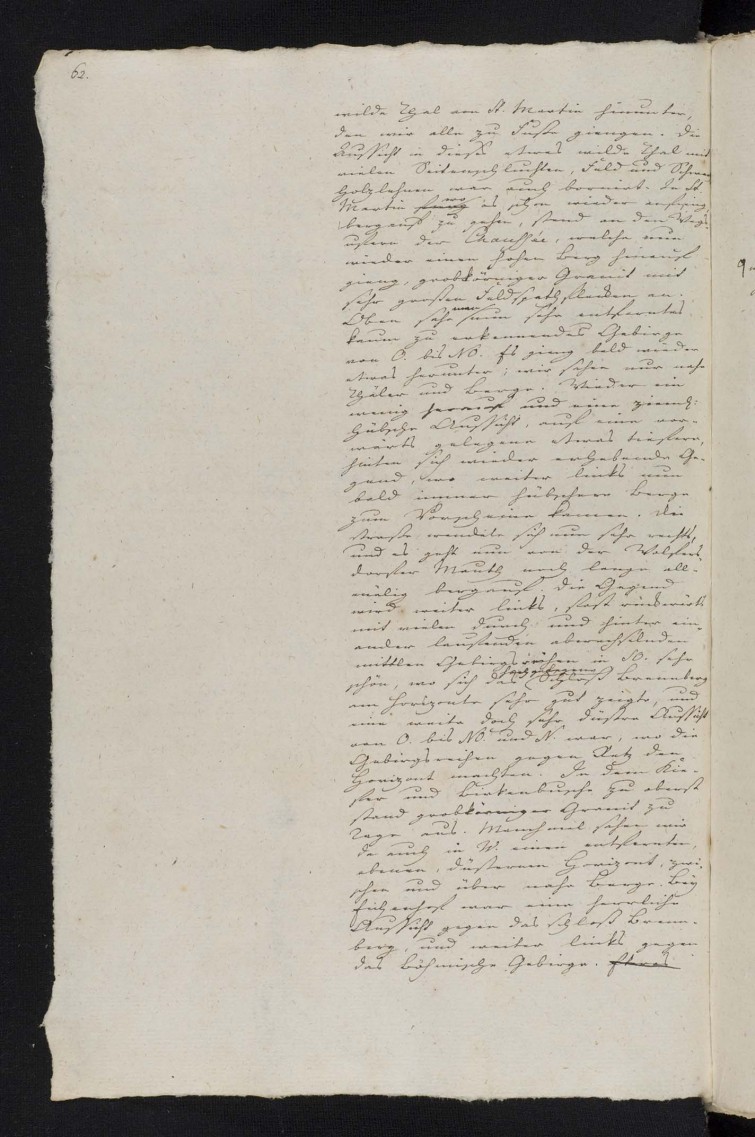 62.
wilde Thal von St. Martin hinunter,
den wir alle zu Fuße giengen. Die
Aussicht in dieses etwas wilde Thal mit
vielen Seitenschluchten, Feld und Schwarz
holzlehnen war auch bornirt. In St.
Martin wo es schon wieder anfieng
bergauf zu gehen, stand an den Weg-
ufern der Chaussée, welche nun
wieder einen hohen Berg hinauf
gieng, grobkörniger Granit mit
sehr großen Feldspathflecken an.
Oben sahe man nun sehr entferntes
kaum zu erkennendes Gebirge
von O. bis NO. Es gieng bald wieder
etwas herunter; wir sahen nur nahe
Thäler und Berge. Wieder ein
wenig herauf und eine ziemlich
hübsche Aussicht, auf eine vor-
wärts gelegene etwas tiefere,
hinten sich wieder erhebende Ge-
gend, wo weiter links nun
bald immer hübschere Berge
zum Vorscheine kamen. Die
Straße wendete sich nun sehr rechts,
und es geht nun von der
Mauth noch lange all-
mälig bergauf. Die Gegend
wird weiter links, fast rückwärts
mit vielen durch und hinter ein-
ander laufenden abwechselnden
mittlen Gebirgsreihen in SO. sehr
schön, wo sich das Schloß Brennberg
am Horizonte sehr gut zeigte, und
eine weite doch sehr düstre Aussicht
von O. bis NO. und N. war, wo die
Gebirgsreihen gegen den
Horizont machten. In dem Kie-
fer und Birkenbusche zu oberst
stand grobkörniger Granit zu
Tage aus. Manchmal sahen wir
da auch in W. einen entfernten,
ebenen, düsteren Horizont, zwi-
schen und über nahe Berge. Bey
war eine herrliche
Aussicht gegen das Schloß Brenn-
berg, und weiter links gegen
das Böhmische Gebirge. Etwas